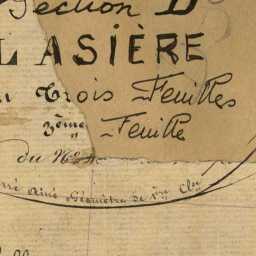 Section D
LASIÈRE
Trois Feuilles
3ème Feuille
du No
Aîné Géomètre de 1ère Clas